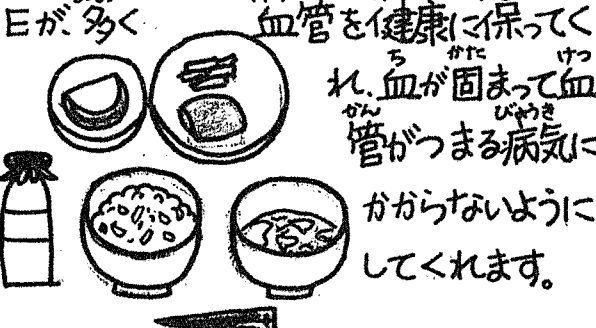 Eが、多く 血管を健康に保ってく
ち かた けつ
れ、血が固まって血
かん びょうき
管がつまる病気に
かからないように
してくれます。